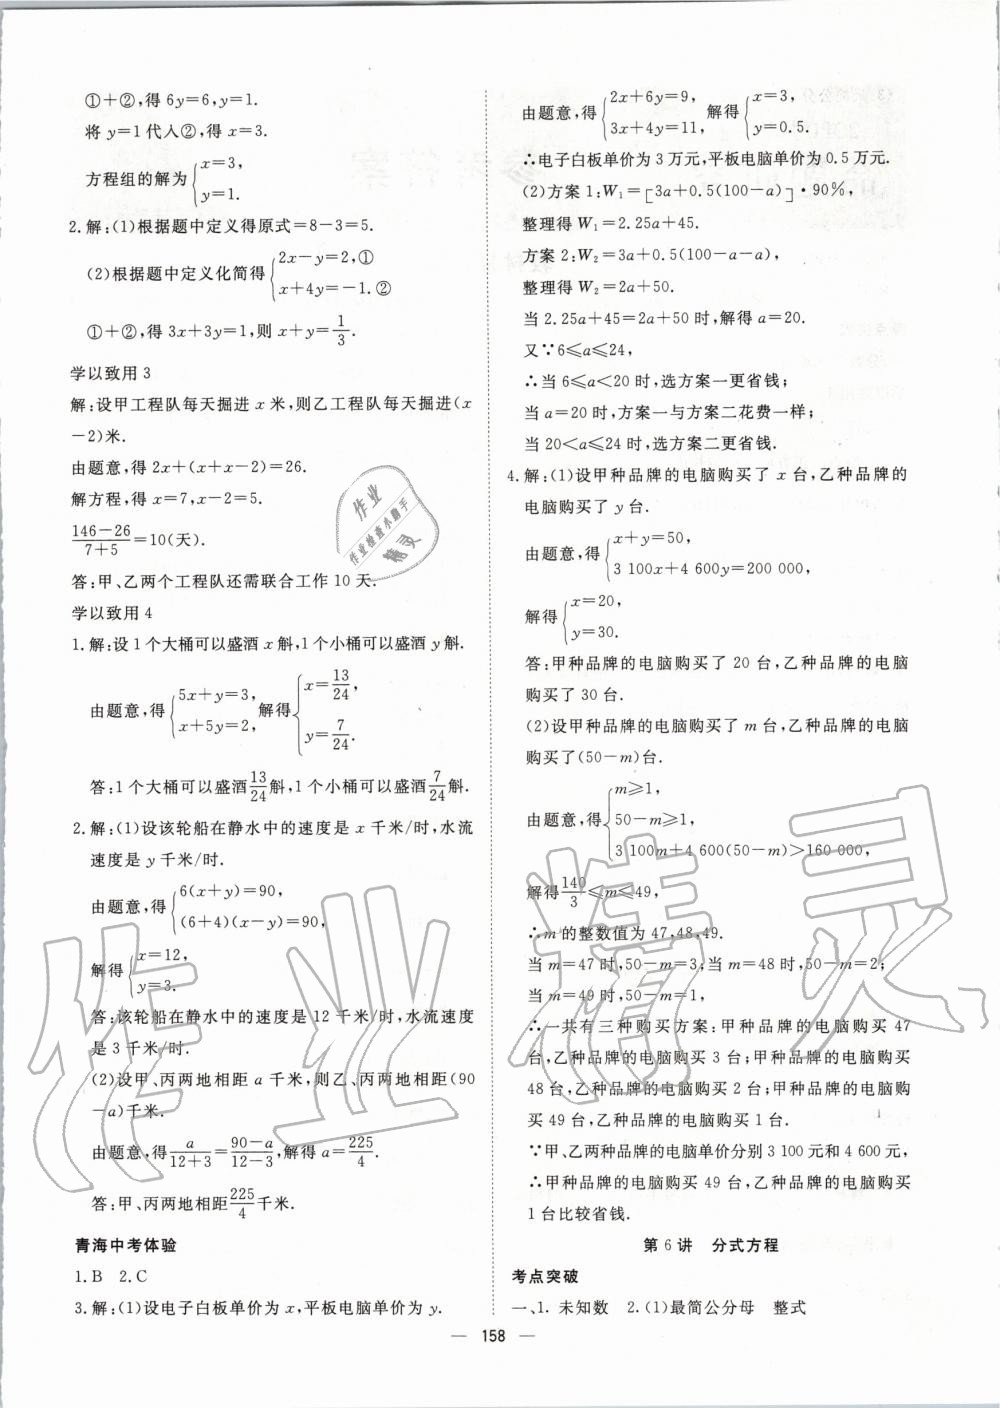 ①+②,得 6y=6,y=1.
将 y=1代人②,得 x=3.
方程组的解为{x=3,
y=1.
2.解:(1)根据题中定义得原式=8-3=5.
(2)根据题中定义化简得{2x-y=2,①
x+4y=-1.②
①+②,得 3x+3y=1,则 x+y=1/3.
学以致用 3
解:设甲工程队每天掘进 x 米,则乙工程队每天掘进(x
-2)米.
由题意,得 2x+(x+x-2)=26.
解方程,得 x=7,x-2=5.
(146-26)/(7+5)=10(天).
答:甲、乙两个工程队还需联合工作 10 天.
学以致用 4
1.解:设 1 个大桶可以盛酒 x 斛,1 个小桶可以盛酒 y 斛.
由题意,得{5x+y=3,
x+5y=2,
解得{x=13/24,
y=7/24.
答:1 个大桶可以盛酒13/24斛,1 个小桶可以盛酒7/24斛.
2.解:(1)设该轮船在静水中的速度是 x 千米/时,水流
速度是 y 千米/时.
由题意,得{6(x+y)=90,
(6+4)(x-y)=90,
解得{x=12,
y=3.
答:该轮船在静水中的速度是 12 千米/时,水流速度
是 3 千米/时.
(2)设甲、丙两地相距 a 千米,则乙、丙两地相距(90
-a)千米.
由题意,得a/(12+3)=(90-a)/(12-3),解得 a=225/4.
答:甲、丙两地相距225/4千米.
青海中考体验
1.B 2.C
3.解:(1)设电子白板单价为 x,平板电脑单价为 y.
由题意,得{2x+6y=9,
3x+4y=11,
解得{x=3,
y=0.5.
∴电子白板单价为 3 万元,平板电脑单价为 0.5 万元.
(2)方案 1:W₁=[3a+0.5(100-a)]·90%,
整理得 W₁=2.25a+45.
方案 2:W₂=3a+0.5(100-a-a),
整理得 W₂=2a+50.
当 2.25a+45=2a+50 时,解得 a=20.
又∵6≤a≤24,
∴当 6≤a<20 时,选方案一更省钱;
当 a=20 时,方案一与方案二花费一样;
当 20<a≤24 时,选方案二更省钱.
4.解:(1)设甲种品牌的电脑购买了 x 台,乙种品牌的
电脑购买了 y 台.
由题意,得{x+y=50,
3 100x+4 600y=200 000,
解得{x=20,
y=30.
答:甲种品牌的电脑购买了 20 台,乙种品牌的电脑购
买了 30 台.
(2)设甲种品牌的电脑购买了 m 台,乙种品牌的电脑
购买了(50-m)台.
由题意,得{m≥1,
50-m≥1,
3 100m+4 600(50-m)>160 000,
解得140/3≤m≤49,
∴m 的整数值为 47,48,49.
当 m=47 时,50-m=3;当 m=48 时,50-m=2;
当 m=49 时,50-m=1,
∴一共有三种购买方案:甲种品牌的电脑购买 47
台,乙种品牌的电脑购买 3 台;甲种品牌的电脑购买
48 台,乙种品牌的电脑购买 2 台;甲种品牌的电脑购
买 49 台,乙种品牌的电脑购买 1 台.
∵甲、乙两种品牌的电脑单价分别 3 100 元和 4 600 元,
∴甲种品牌的电脑购买 49 台,乙种品牌的电脑购买
1 台比较省钱.
第 6 讲 分式方程
考点突破
一、1. 未知数 2.(1)最简公分母 整式
— 158 —
作业
作业检查小助手
精灵
作业精灵